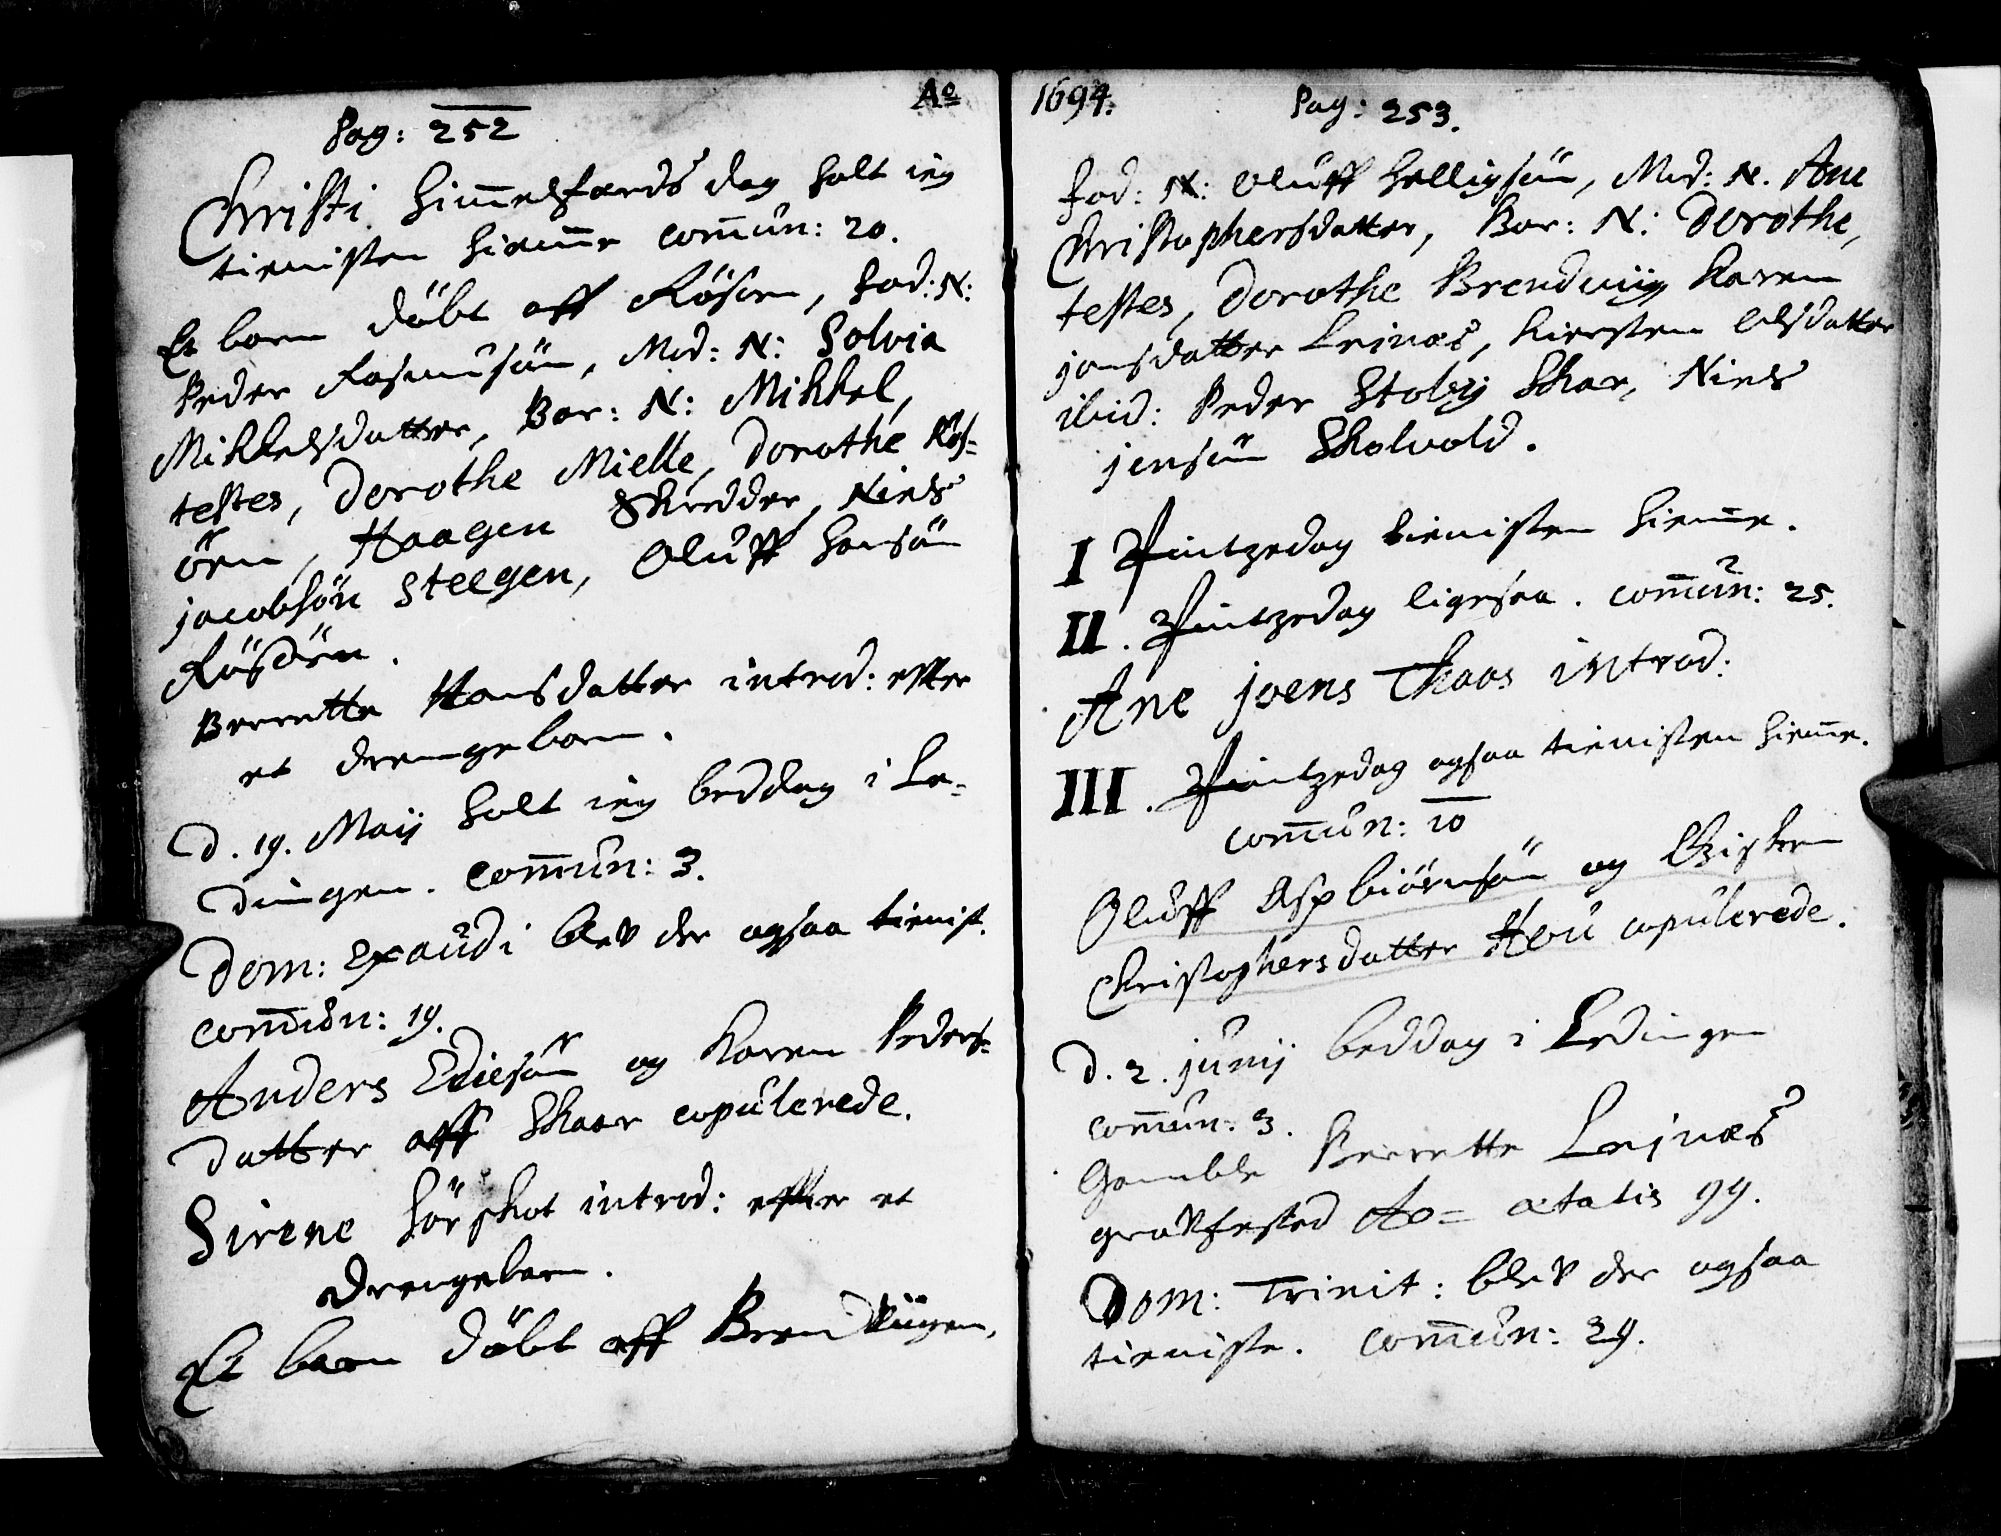 Pag: 252
Christi Himelsfærds dag holt ieg
tienisten hiemme comun: 20.
Et barn döbt aff Rösöen, Fad: N:
Peder Rasmusön, Mod: N: Solvia
Mikkelsdatter, Bar: N: Mikkel,
testes, Dorothe Mielle, Dorothe Rös-
öen, Haagen Skredder, Niels
jacobsön Steegen, Oluff Hansön
Rösöen.
Berrette Hansdatter introd: effter
et drengebarn.
D. 19. Maij holt ieg beddag i Le-
dingen. comun: 3.
Dom: Exaudi blev der ogsaa tienist.
comun: 19.
Anders Ediesön og Karen Peders-
datter aff Skaar copulerede.
Sirene Hörskot introd: effter et
drengebarn.
Et barn döbt aff Brendviigen,
Ao 1694.
Pag: 253.
Fad: N: Oluff Helligsön, Mod: N. Ane
Christophersdatter, Bar: N: Dorothe,
testes, Dorothe Brendviig Karen
jonsdatter Leinæs, Kiersten Olsdatter
ibid: Peder Stoly Skar, Niels
jensön Skolvold.
I Pintzedag tienisten hieme.
II. Pintzedag ligesaa. comun: 25.
Ane joens Thaas introd:
III. Pintzedag ogsaa tienisten hieme.
comun: 10
Oluff Aspbiörnsön og
Christophersdatter Hou copulerede.
D. 2. junij beddag i Ledingen
comun: 3.
Gamble Berrette Lejnæs
gravfested Ao= ætatis 99.
Dom: Trinit: blev der ogsaa
tieniste. comun: 29.